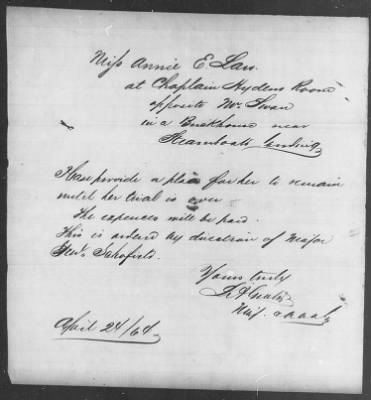 Miss Annie E. Law
at Chaplain Hydens Room
opposite Mr. Swan
in a Brickhouse near
Steamboat landing
Please provide a place for her to remain
until her trial is over
The expenses will be paid.
This is ordered by direction of Major
Genl. Schofield.
Yours truly
Maj.
April 24/64